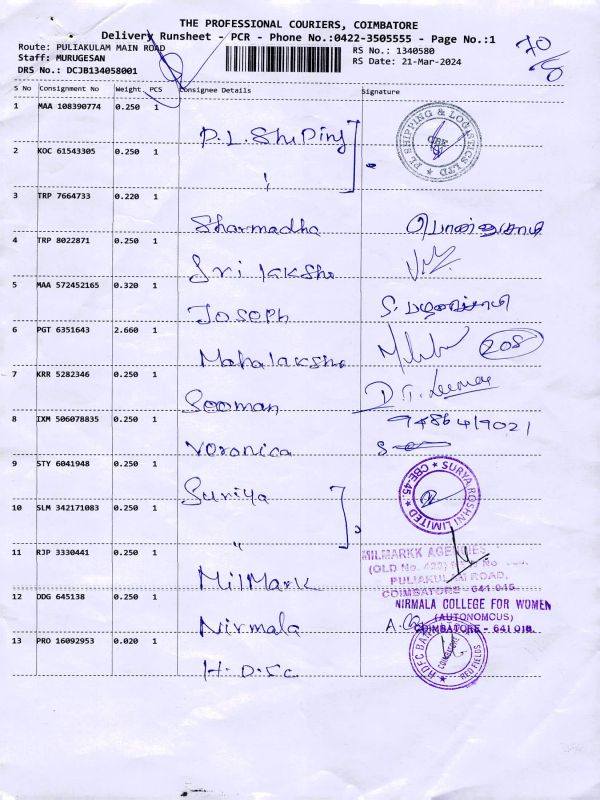 THE PROFESSIONAL COURIERS, COIMBATORE
Delivery Runsheet - PCR - Phone No.:0422-3505555 - Page No.:1
Route: PULIAKULAM MAIN ROAD
Staff: MURUGESAN
DRS No.: DCJB134058001
RS No.: 1340580
RS Date: 21-Mar-2024
70
S No Consignment No Weight PCS Consignee Details Signature
1 MAA 108390774 0.250 1 P.L. Shipping
PL SHIPPING & LOGISTICS LTD CBE
2 KOC 61543305 0.250 1 "
3 TRP 7664733 0.220 1 Sharmadha
4 TRP 8022871 0.250 1 Sri lakshe
5 MAA 572452165 0.320 1 Joseph
6 PGT 6351643 2.660 1 Mahalakshe 208
7 KRR 5282346 0.250 1 Sooman
8 IXM 506078835 0.250 1 Voronica
9486419021
9 STY 6041948 0.250 1 Suriya
SURYA ROSHNI LIMITED CBE-45.
10 SLM 342171083 0.250 1 "
11 RJP 3330441 0.250 1 MilMark
MILMARKK AGENCIES
(OLD No. 423) No
PULIAKULAM ROAD,
COIMBATORE - 641 045.
12 DDG 645138 0.250 1 Nirmala
NIRMALA COLLEGE FOR WOMEN
(AUTONOMOUS)
COIMBATORE - 641 018.
13 PRO 16092953 0.020 1 H.D.F.C
HDFC BANK COIMBATORE RED FIELDS